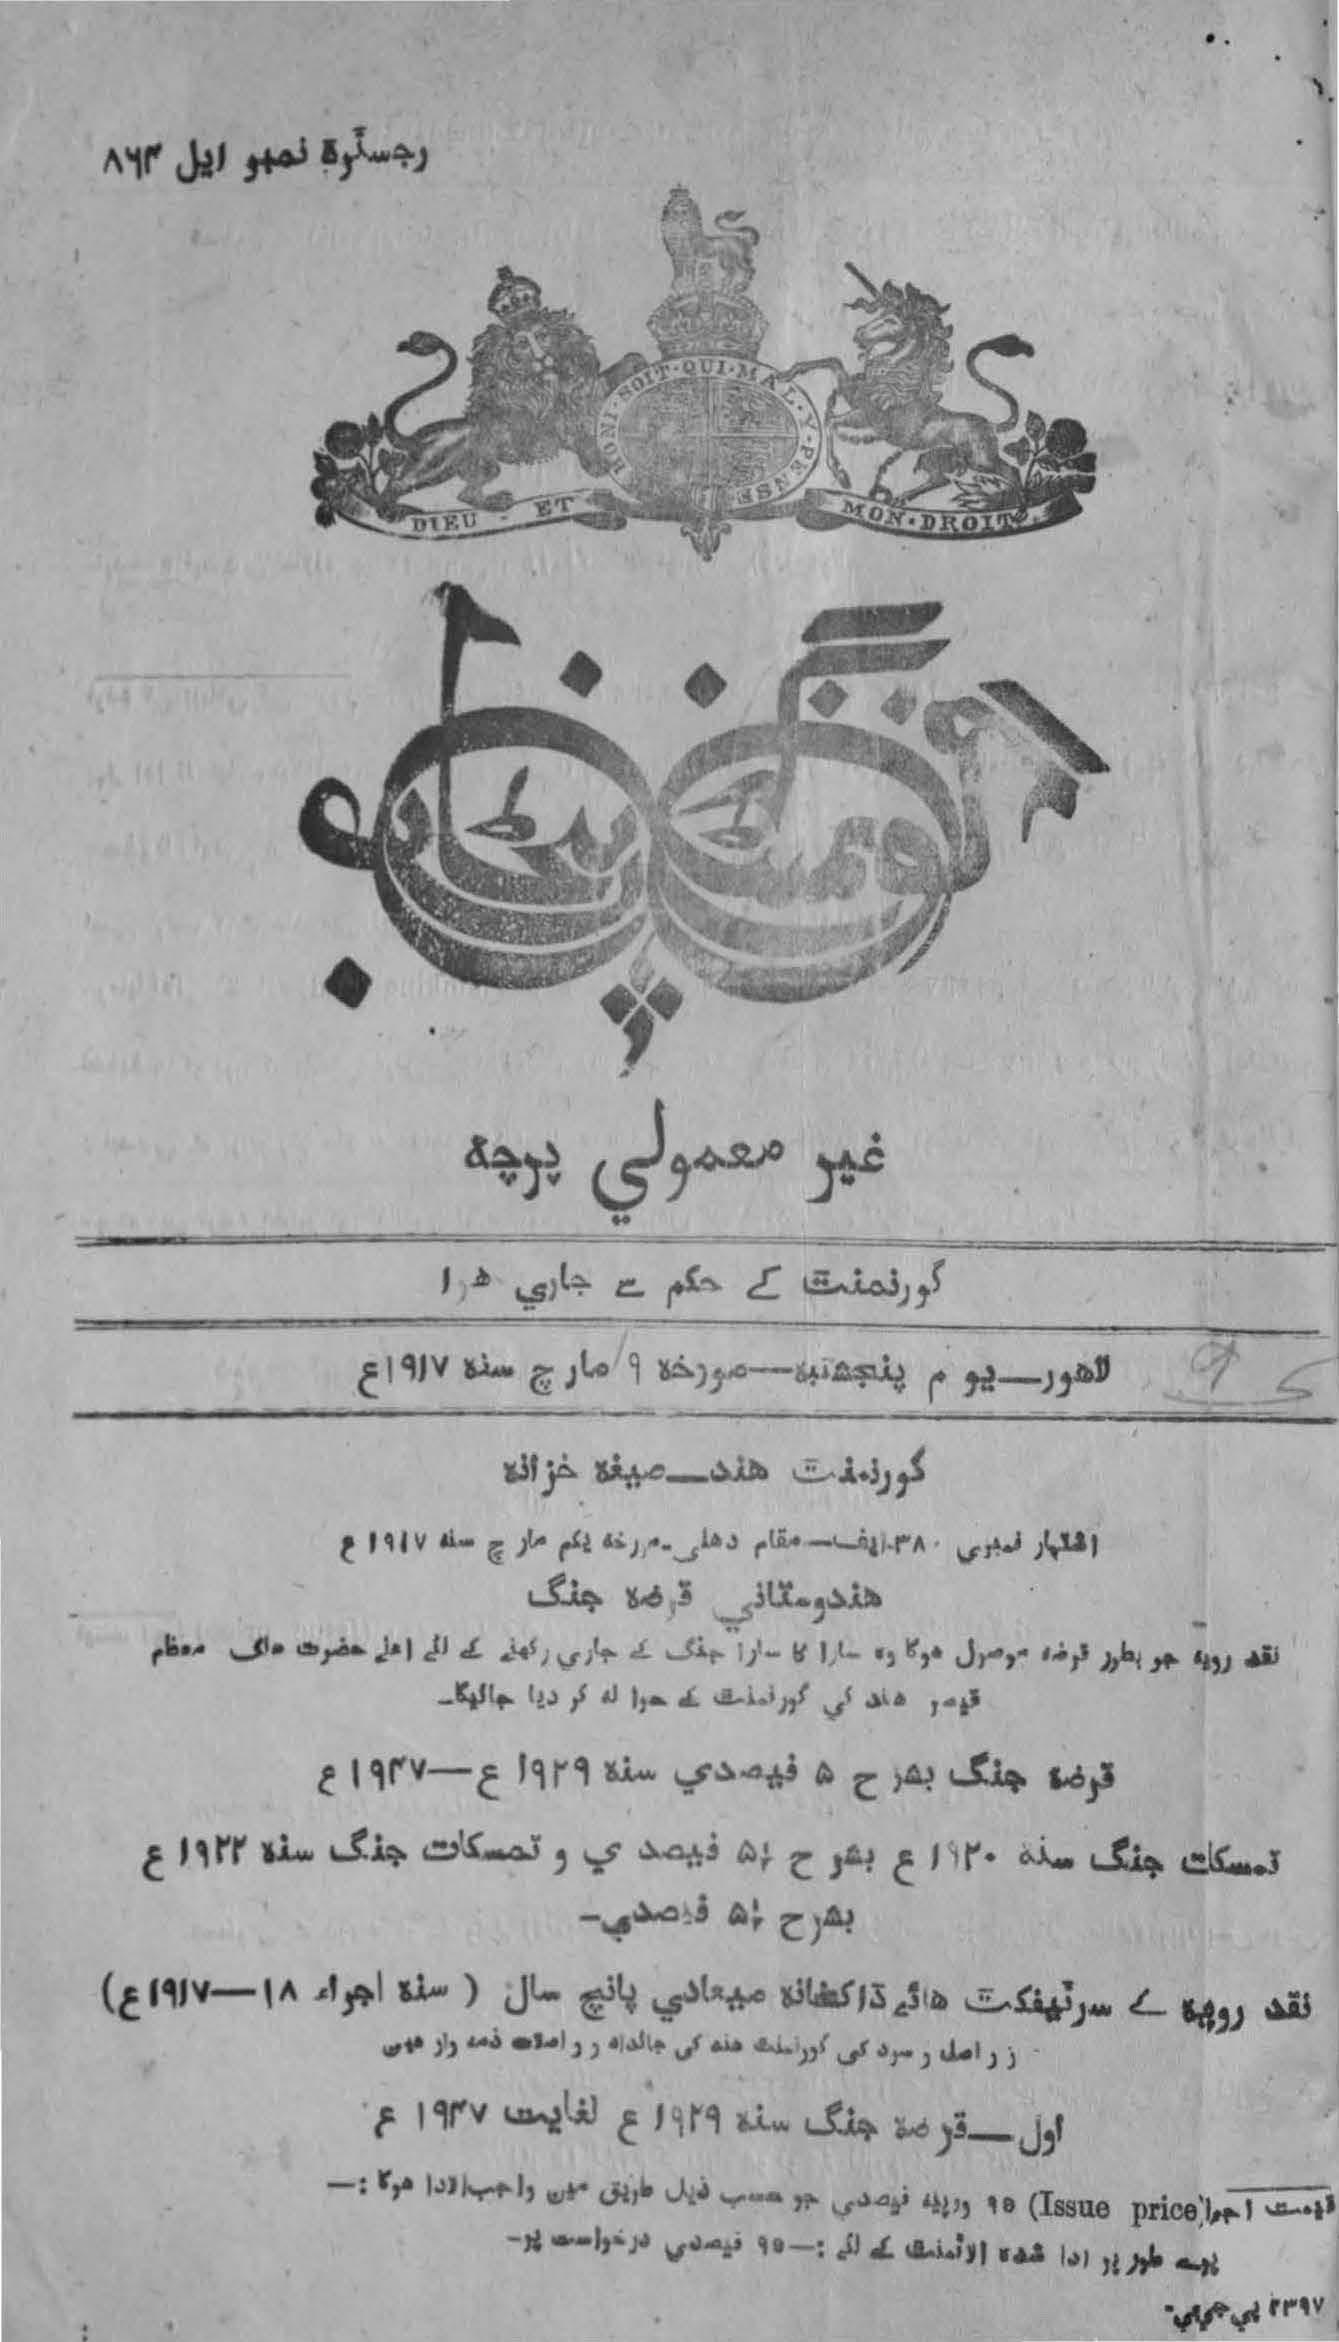 رجسٹرڈ نمبر ایل ۸۶۴
HONI·SOIT·QUI·MAL·Y·PENSE
DIEU - ET MON·DROIT
گورنمنٹ گزٹ پنجاب
غیر معمولي پرچه
گورنمنٹ کے حکم سے جاري هوا
لاهور—یوم پنجشنبه—مورخه ۹ مارچ سنه ۱۹۱۷ع
گورنمنٹ هند—صیغه خزانه
اشتہار نمبری ۳۸۰-ایف—مقام دهلی-مورخه یکم مارچ سنه ۱۹۱۷ع
هندوستاني قرضه جنگ
نقد روپیه جو بطور قرضه موصول هوگا وه سارا کا سارا جنگ کے جاري رکھنے کے لئے اعلے حضرت ملک معظم
قیصر هند کي گورنمنٹ کے حواله کر دیا جائیگا-
قرضه جنگ بشرح ۵ فیصدي سنه ۱۹۲۹ع—۱۹۴۷ع
تمسکات جنگ سنه ۱۹۲۰ع بشرح ۵½ فیصدي و تمسکات جنگ سنه ۱۹۲۲ع
بشرح ۵½ فیصدي-
نقد روپیه کے سرٹیفکٹ هائے ڈاکخانه میعادي پانچ سال (سنه اجراء ۱۸—۱۹۱۷ع)
زر اصل و سود کی گورنمنٹ هند کی جائداد و واصلات ذمه وار هیں
اول—قرضه جنگ سنه ۱۹۲۹ع لغایت ۱۹۴۷ع
قیمت اجرا (Issue price) ۹۵ روپیه فیصدي جو حسب ذیل طریق میں واجب الادا هوگا :—
پورے طور پر ادا شده الاٹمنٹ کے لئے :—۹۵ فیصدي درخواست پر-
۲۳۹۷ پي جي پي-